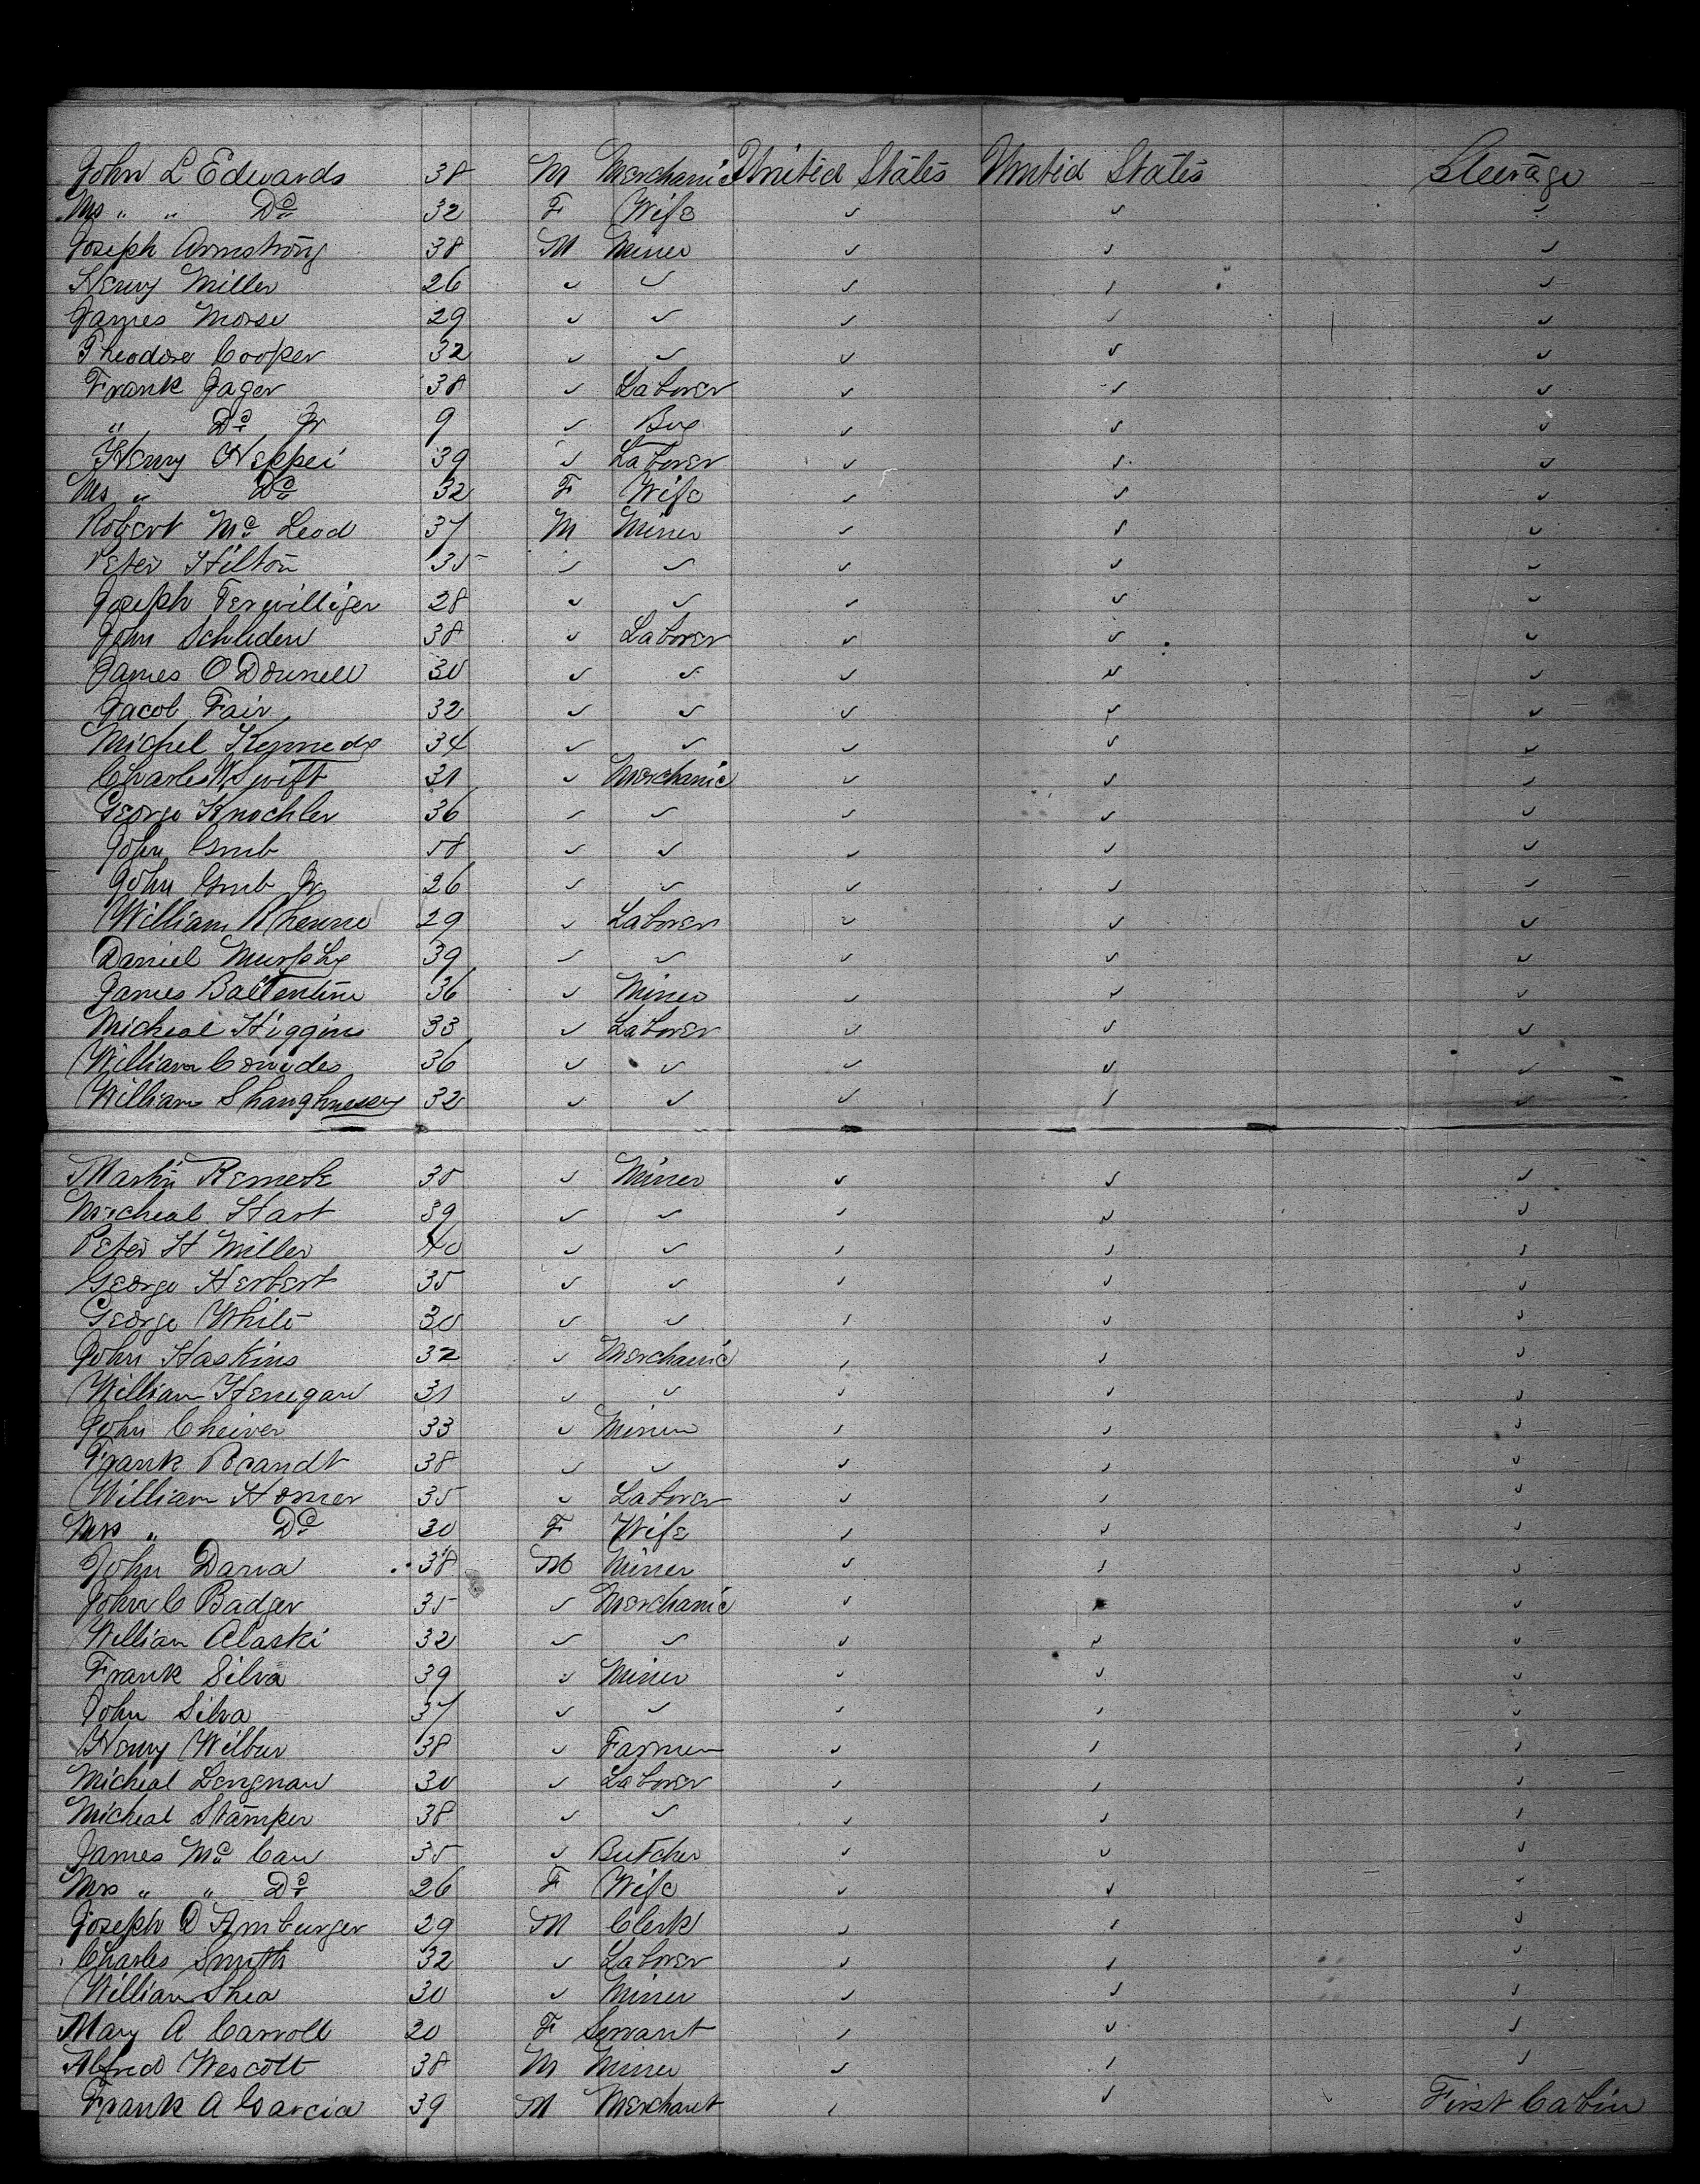 John L Edwards 38 M Merchanic United States United States Steerage
Mrs " " Do 32 F Wife ✓ ✓ ✓
Joseph Armstrong 38 M Miner ✓ ✓ ✓
Henry Miller 26 ✓ ✓ ✓ ✓ ✓
James Morse 29 ✓ ✓ ✓ ✓ ✓
Theodore Cooper 32 ✓ ✓ ✓ ✓ ✓
Frank Jager 38 ✓ Laborer ✓ ✓ ✓
" Do Jr 9 ✓ Boy ✓ ✓ ✓
Henry Heppei 39 ✓ Laborer ✓ ✓ ✓
Mrs " Do 32 F Wife ✓ ✓ ✓
Robert Mc Leod 37 M Miner ✓ ✓ ✓
Peter Hilton 35 ✓ ✓ ✓ ✓ ✓
Joseph Terwilliger 28 ✓ ✓ ✓ ✓ ✓
John Schleden 38 ✓ Laborer ✓ ✓ ✓
James O Donnell 30 ✓ ✓ ✓ ✓ ✓
Jacob Fair 32 ✓ ✓ ✓ ✓ ✓
Michel Kennedy 34 ✓ ✓ ✓ ✓ ✓
Charles W Swift 31 ✓ Merchanic ✓ ✓ ✓
George Knochler 36 ✓ ✓ ✓ ✓ ✓
John Grub 58 ✓ ✓ ✓ ✓ ✓
John Grub Jr 26 ✓ ✓ ✓ ✓ ✓
William 29 ✓ Laborer ✓ ✓ ✓
Daniel Murphy 39 ✓ ✓ ✓ ✓ ✓
James Ballentine 36 ✓ Miner ✓ ✓ ✓
Micheal Higgins 33 ✓ Laborer ✓ ✓ ✓
William 36 ✓ ✓ ✓ ✓ ✓
William Shaughnessy 32 ✓ ✓ ✓ ✓ ✓
Martin 35 ✓ Miner ✓ ✓ ✓
Micheal Hart 39 ✓ ✓ ✓ ✓ ✓
Peter H Miller 40 ✓ ✓ ✓ ✓ ✓
George Herbert 35 ✓ ✓ ✓ ✓ ✓
George White 30 ✓ ✓ ✓ ✓ ✓
John Haskins 32 ✓ Merchanic ✓ ✓ ✓
William Henegan 31 ✓ ✓ ✓ ✓ ✓
John Cheiver 33 ✓ Miner ✓ ✓ ✓
Frank Brandt 38 ✓ ✓ ✓ ✓ ✓
William Homer 35 ✓ Laborer ✓ ✓ ✓
Mrs " Do 30 F Wife ✓ ✓ ✓
John Dana 38 M Miner ✓ ✓ ✓
John C Badger 35 ✓ Merchanic ✓ ✓ ✓
William Alaski 32 ✓ ✓ ✓ ✓ ✓
Frank Silva 39 ✓ Miner ✓ ✓ ✓
John Silva 37 ✓ ✓ ✓ ✓ ✓
Henry Wilbur 38 ✓ Farmer ✓ ✓ ✓
Micheal Lengnan 30 ✓ Laborer ✓ ✓ ✓
Micheal Stamper 38 ✓ ✓ ✓ ✓ ✓
James Mc Can 35 ✓ Butcher ✓ ✓ ✓
Mrs " " Do 26 F Wife ✓ ✓ ✓
Joseph D Amburger 29 M Clerk ✓ ✓ ✓
Charles Smith 32 ✓ Laborer ✓ ✓ ✓
William Shea 30 ✓ Miner ✓ ✓ ✓
Mary A Carroll 20 F Servant ✓ ✓ ✓
Alfred Wescott 38 M Miner ✓ ✓ ✓
Frank A Garcia 39 M Merchant ✓ ✓ First Cabin